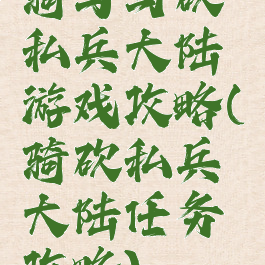 骑马与砍
私兵大陆
游戏攻略(
骑砍私兵
大陆任务
攻略)